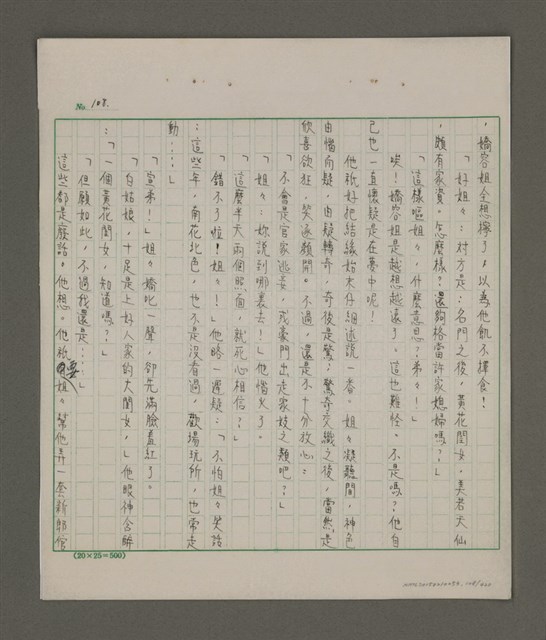 No. 108.
，嬌容姐全想擰了，以為他飢不擇食！
「好姐々，對方是：名門之後，黃花閨女，美若天仙
，頗有家資。怎麼樣？還夠格當許家媳婦嗎？」
「這樣喔姐々，什麼意思？弟々！」
唉！嬌容姐是越想越遠了。這也難怪。不是嗎？他自
己也一直懷疑是在夢中呢！
他祇好把結緣始末仔細述說一番。姐々凝聽間，神色
由惱而疑，由疑轉奇，奇後是驚；驚奇交織之後，當然是
欣喜欲狂，笑逐顏開。不過，還是不十分放心：
「不會是官家逃妾，或豪門出走家妓之類吧？」
「姐々：妳說到哪裏去！」他惱火了。
「這麼半天兩個照面，就死心相信？」
「錯不了啦！姐々！」他略一遲疑：「不怕姐々笑話
：這些年，南花北色，也不是沒看過，歡場玩所，也常走
動……」
「宣弟！」姐々嬌叱一聲，卻先滿臉羞紅了。
「白姑娘，十足是上好人家的大閨女，」他眼神含醉
：「一個黃花閨女，知道嗎？」
「但願如此，不過我還是……」
這些都是廢話，他想。他祇要姐々幫他弄一套新郎倌
(20×25=500)